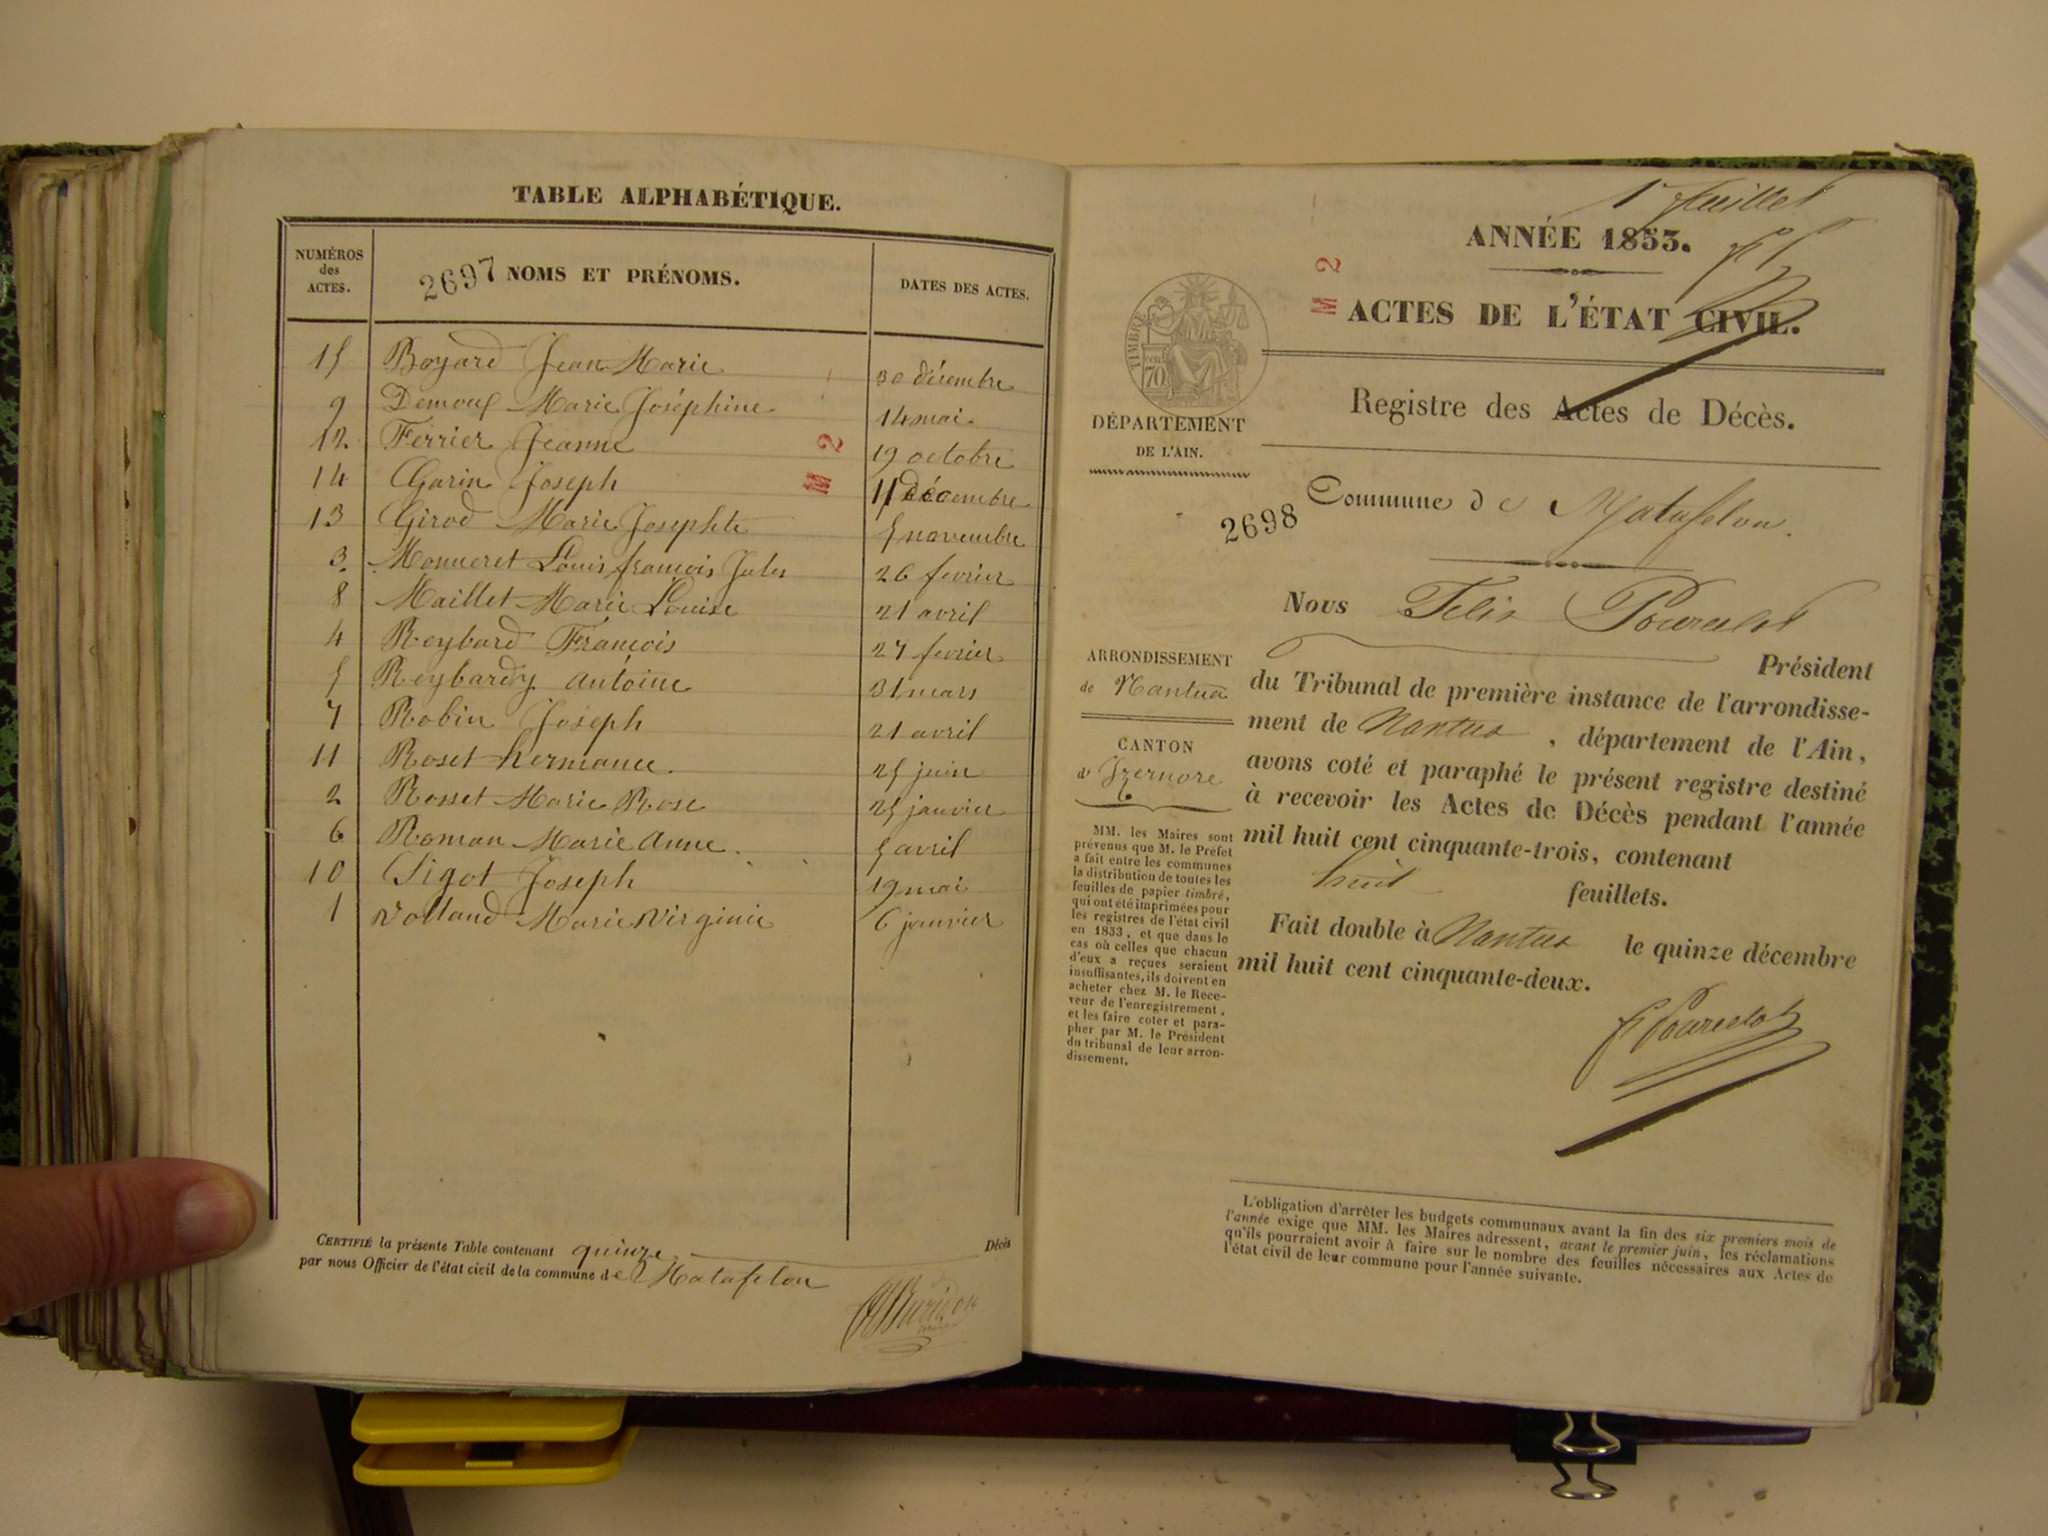 TABLE ALPHABÉTIQUE.
NUMÉROS des ACTES. 2697 NOMS ET PRÉNOMS. DATES DES ACTES.
15 Boyard Jean Marie 30 décembre
9 Marie Joséphine 14 mai
12 Ferrier Jeanne 19 octobre
14 Garin Joseph 11 décembre
13 Girod Marie Josephte 5 novembre
3. Monneret Louis françois Jules 26 fevrier
8 Maillet Marie Louise 21 avril
4 Reybard François 27 fevrier
5 Reybardy antoine 31 mars
7 Robin Joseph 21 avril
11 Roset hermance. 25 juin
2 Rosset Marie Rose 25 janvier
6 Roman Marie anne. 5 avril
10 Sigot Joseph 19 mai
1 Volland Marie Virginie 6 janvier
M 2
CERTIFIÉ la présente Table contenant quinze Décès
par nous Officier de l'état civil de la commune de Matafelon
1r feuillet
ANNÉE 1853.
M 2
ACTES DE L'ÉTAT CIVIL.
TIMBRE
70
Registre des Actes de Décès.
DÉPARTEMENT
DE L'AIN.
2698
Commune de Matafelon.
Nous Félix Pourcelot
Président
du Tribunal de première instance de l'arrondisse-
ment de Nantua, département de l'Ain,
avons coté et paraphé le présent registre destiné
à recevoir les Actes de Décès pendant l'année
mil huit cent cinquante-trois, contenant
huit feuillets.
Fait double à Nantua le quinze décembre
mil huit cent cinquante-deux.
F Pourcelot
ARRONDISSEMENT
de Nantua
CANTON
d'Izernore
MM. les Maires sont
prévenus que M. le Préfet
a fait entre les communes
la distribution de toutes les
feuilles de papier timbré,
qui ont été imprimées pour
les registres de l'état civil
en 1853, et que dans le
cas où celles que chacun
d'eux a reçues seraient
insuffisantes, ils doivent en
acheter chez M. le Rece-
veur de l'enregistrement,
et les faire coter et para-
pher par M. le Président
du tribunal de leur arron-
dissement.
L'obligation d'arrêter les budgets communaux avant la fin des six premiers mois de
l'année exige que MM. les Maires adressent, avant le premier juin, les réclamations
qu'ils pourraient avoir à faire sur le nombre des feuilles nécessaires aux Actes de
l'état civil de leur commune pour l'année suivante.